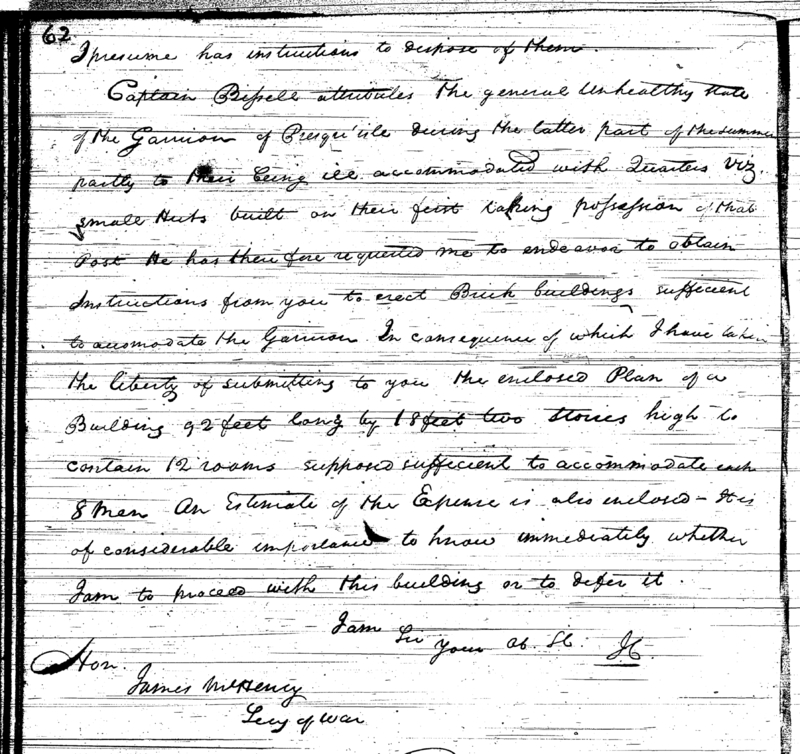 62
I presume has instructions to dispose of them.
Captain Bissell attributes the general unhealthy state
of the Garrison of Presqu'isle during the latter part of the summer
partly to their being ill accommodated with Quarters Viz.
small Huts built on their first taking possession of that
Post He has therefore requested me to endeavor to obtain
Instructions from you to erect Brick buildings sufficient
to accomodate the Garrison. In consequence of which I have taken
the liberty of submitting to you the enclosed Plan of a
Building 92 feet long by 18 feet two stories high to
contain 12 rooms supposed sufficient to accommodate each
8 Men An Estimate of the Expense is also enclosed – It is
of considerable importance to know immediately whether
I am to proceed with this building or to defer it.
I am
Sir
your Ob. St.
Hon.
James McHenry
Secy of War